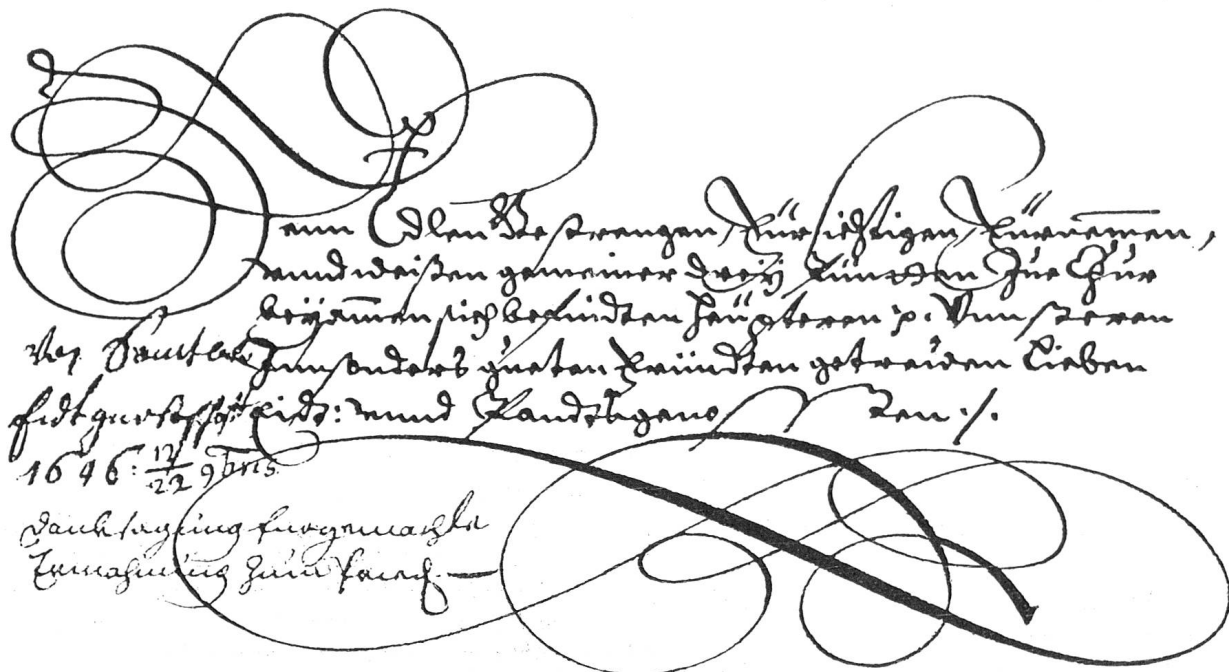 Denn Edlen Gestrengen, Fürsichtigen, Fürnemmen,
unnd weißen gemeiner dreÿ Pündten Zue Chur
beÿsammen sich befindten Heüpteren p. Unnßeren
Innsonders gueten Fründten getreüwen Lieben
Eidt: unnd Pandtsgenoßen ./.
Von
Eidtgnoschafft
1646: 12/22 9bris
Danksagung fur gemachte
Ermahnung zum